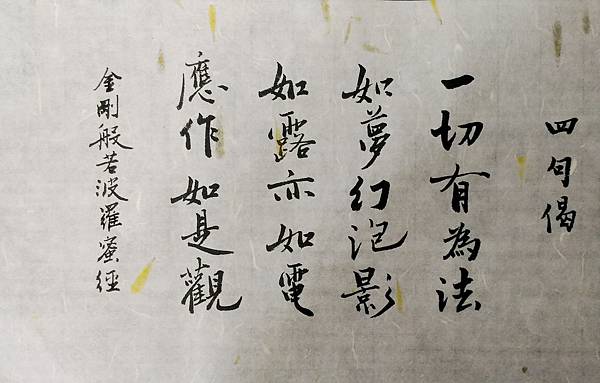 四句偈
一切有為法
如夢幻泡影
如露亦如電
應作如是觀
金剛般若波羅蜜經